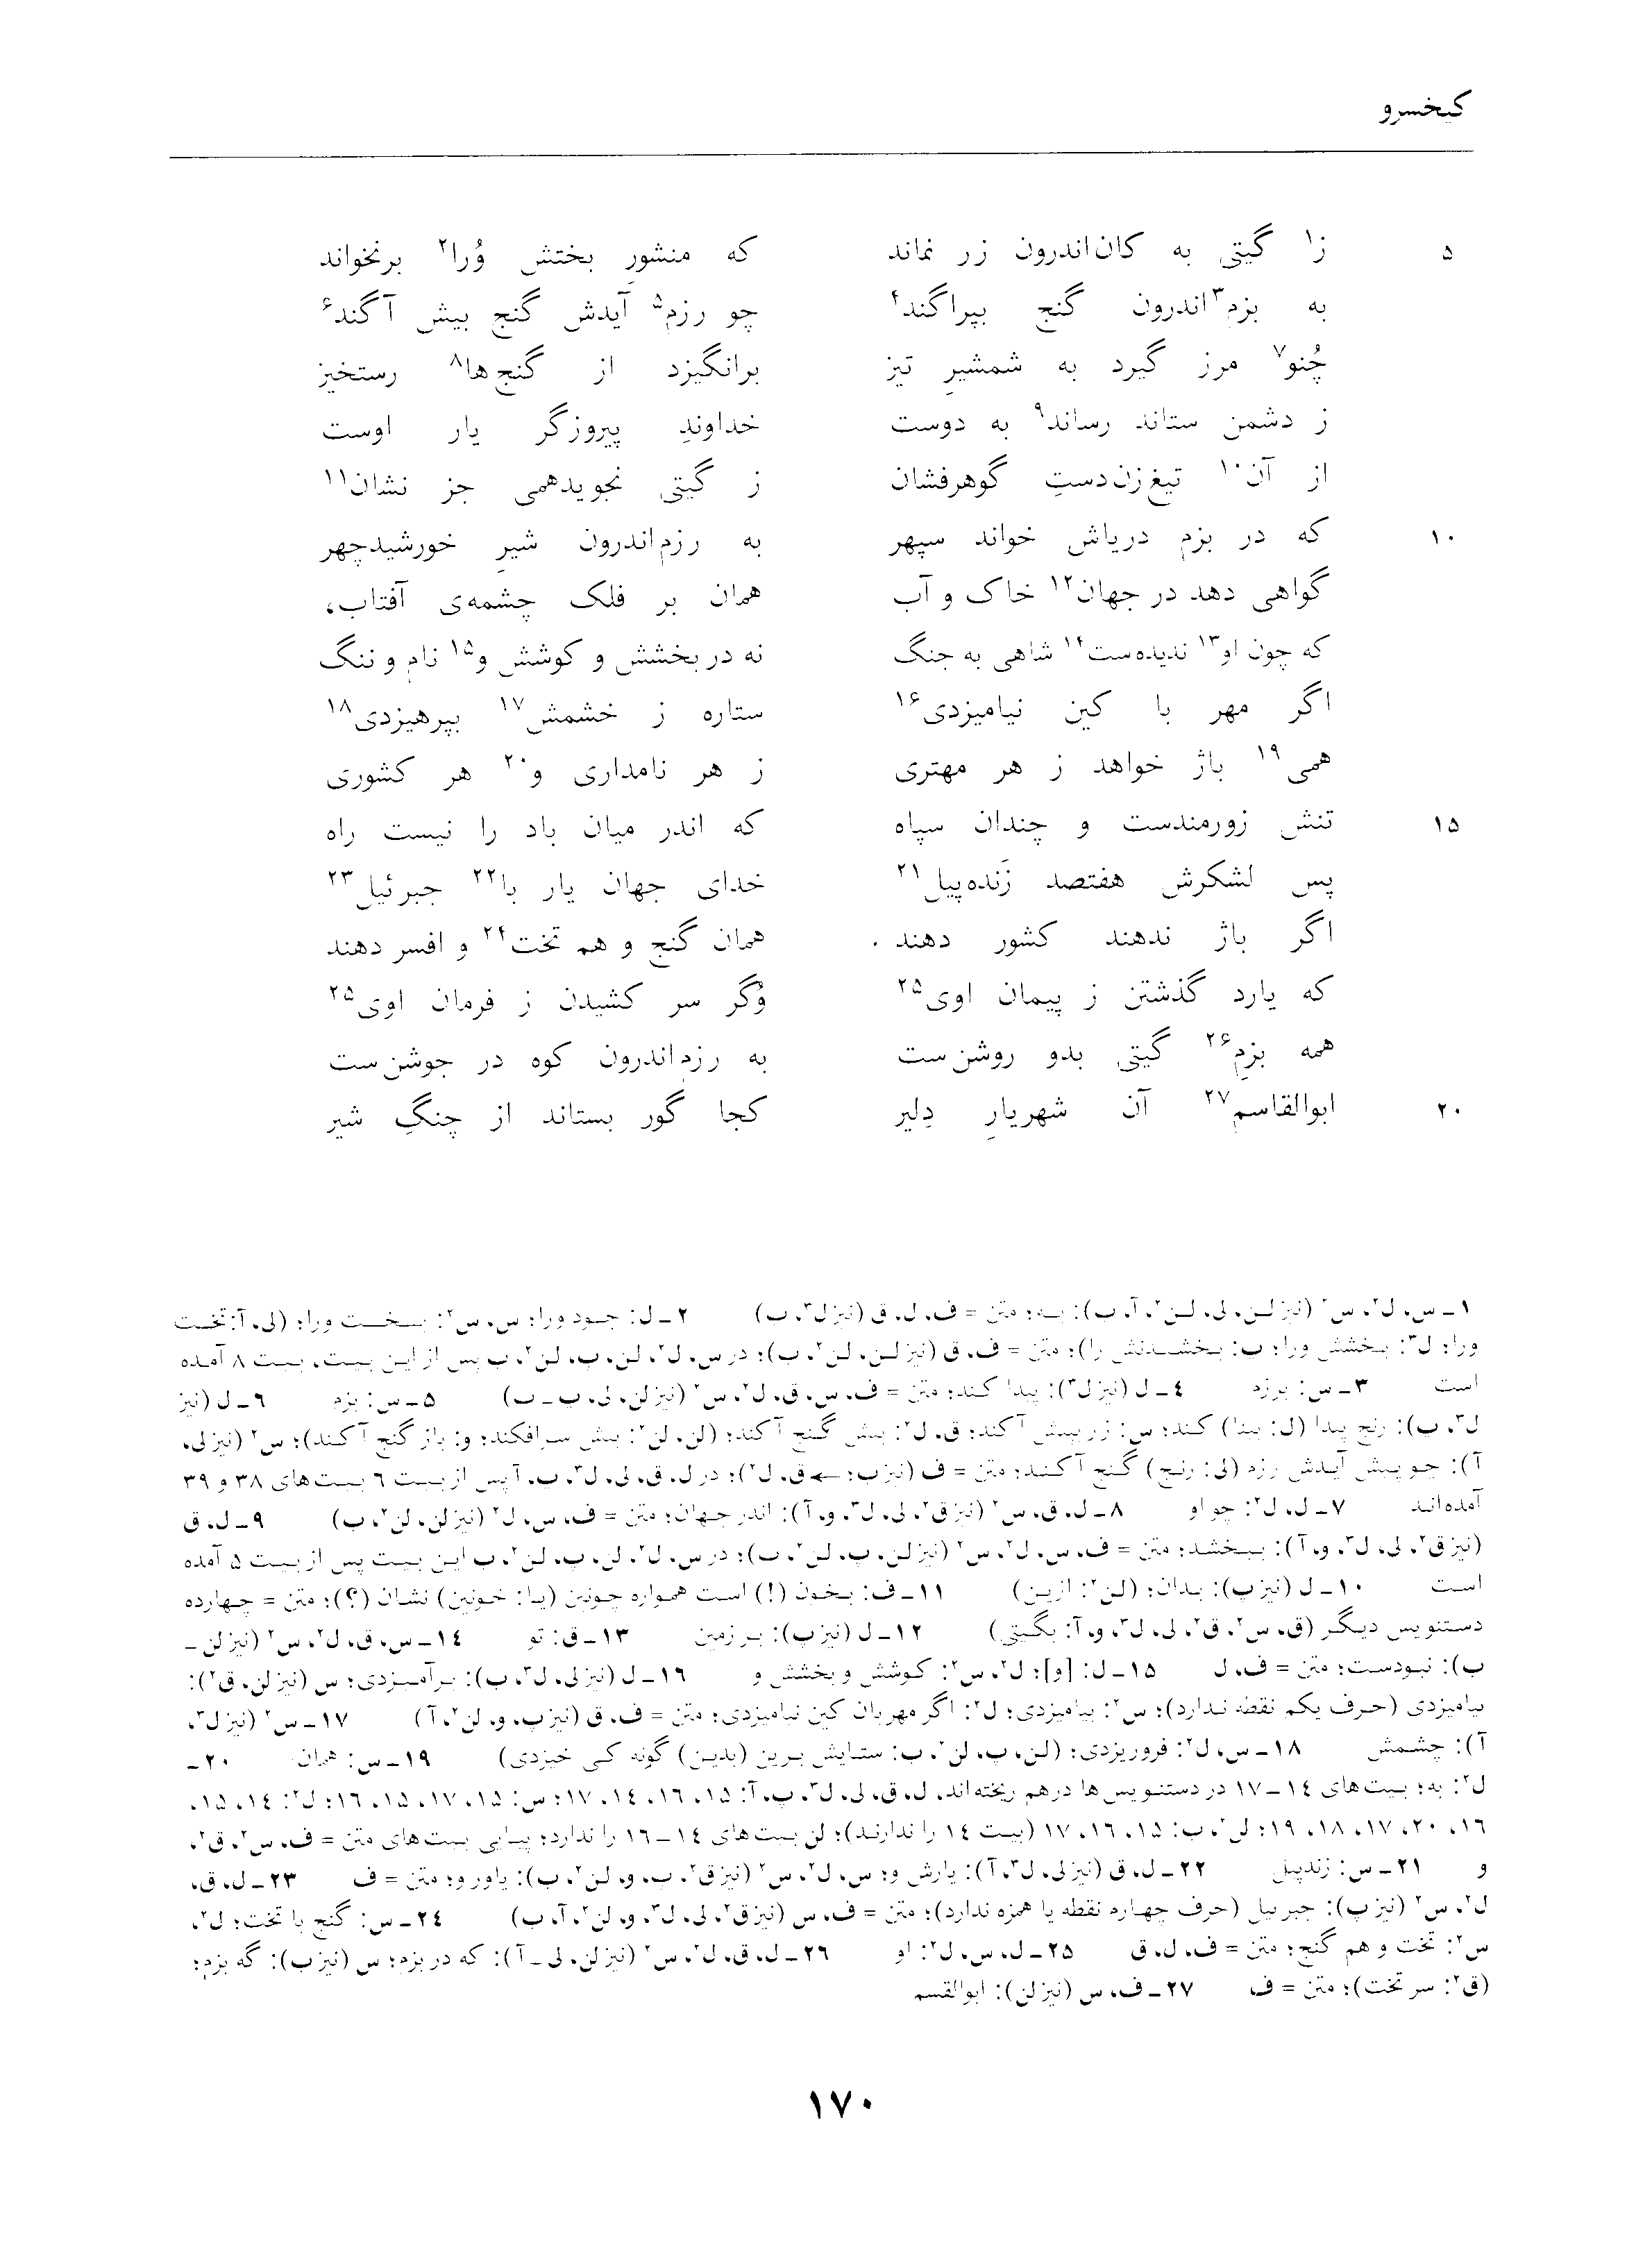 کیخسرو
۵ ز۱ گیتی به کان‌اندرون زر نماند که منشورِ بختش وُرا۲ برنخواند
به بزم۳ اندرون گنج بپراگند۴ چو رزم۵ آیدش گنج بیش آگند۶
چُنو۷ مرز گیرد به شمشیرِ تیز برانگیزد از گنج‌ها۸ رستخیز
ز دشمن ستاند رساند۹ به دوست خداوندِ پیروزگر یار اوست
از آن۱۰ تیغ‌زن‌دستِ گوهرفشان ز گیتی نجویدهمی جز نشان۱۱
۱۰ که در بزم دریاش خواند سپهر به رزم‌اندرون شیرِ خورشیدچهر
گواهی دهد در جهان۱۲ خاک و آب همان بر فلک چشمه‌ی آفتاب،
که چون او۱۳ ندیده‌ست۱۴ شاهی به جنگ نه در بخشش و کوشش و۱۵ نام و ننگ
اگر مهر با کین نیامیزدی۱۶ ستاره ز خشمش۱۷ بپرهیزدی۱۸
همی۱۹ باژ خواهد ز هر مهتری ز هر نامداری و۲۰ هر کشوری
۱۵ تنش زورمندست و چندان سپاه که اندر میان باد را نیست راه
پس لشکرش هفتصد زَنده‌پیل۲۱ خدای جهان یار با۲۲ جبرئیل۲۳
اگر باژ ندهند کشور دهند همان گنج و هم تخت۲۴ و افسر دهند
که یارد گذشتن ز پیمان اوی۲۵ وُگر سر کشیدن ز فرمان اوی۲۵
همه بزمِ۲۶ گیتی بدو روشن‌ست به رزم‌اندرون کوه در جوشن‌ست
۲۰ ابوالقاسم۲۷ آن شهریارِ دِلیر کجا گور بستاند از چنگِ شیر
۱ـ س، ل۲، س۲ (نیز لن، لی، لن۲، آ، ب): به؛ متن = ف، ل، ق (نیز ل۳، ب) ۲ـ ل: جود ورا؛ س، س۲: بخت ورا؛ (لی، آ: تخت
ورا؛ ل۳: بخشش ورا؛ ب: بخشدنش را)؛ متن = ف، ق (نیز لن، لن۲، ب)؛ در س، ل۲، لن، پ، لن۲، ب پس از این بیت، بیت ۸ آمده
است ۳ـ س: برزم ۴ـ ل (نیز ل۳): پیدا کند؛ متن = ف، س، ق، ل۲، س۲ (نیز لن، لی، پ ـ ب) ۵ـ س: بزم ۶ـ ل (نیز
ل۳، ب): رنج پیدا (ل: بیدا) کند؛ س: زر بیش آکند؛ ق، ل۲: بیش گنج آکند؛ (لن، لن۲: بیش سرافکند؛ و: باز گنج آکند)؛ س۲ (نیز لی،
آ): چو پیش آیدش رزم (لی: رنج) گنج آکند؛ متن = ف (نیز پ؛ ← ق، ل۲)؛ در ل، ق، لی، ل۳، پ، آ پس از بیت ۶ بیت‌های ۳۸ و ۳۹
آمده‌اند ۷ـ ل، ل۲: چو او ۸ـ ل، ق، س۲ (نیز ق۲، لی، ل۳، و، آ): اندر جهان؛ متن = ف، س، ل۲ (نیز لن، لن۲، ب) ۹ـ ل، ق
(نیز ق۲، لی، ل۳، و، آ): ببخشد؛ متن = ف، س، ل۲، س۲ (نیز لن، پ، لن۲، ب)؛ در س، ل۲، لن، پ، لن۲، ب این بیت پس از بیت ۵ آمده
است ۱۰ـ ل (نیز پ): بدان؛ (لن۲: ازین) ۱۱ـ ف: بخون (!) است همواره چونین (یا: خونین) نشان (؟)؛ متن = چهارده
دستنویس دیگر (ق، س۲، ق۲، لی، ل۳، و، آ: بگیتی) ۱۲ـ ل (نیز پ): بر زمین ۱۳ـ ق: تو ۱۴ـ س، ق، ل۲، س۲ (نیز لن ـ
ب): نبودست؛ متن = ف، ل ۱۵ـ ل: [و]؛ ل۲، س۲: کوشش و بخشش و ۱۶ـ ل (نیز لی، ل۳، ب): برآمیزدی؛ س (نیز لن، ق۲):
نیامیزدی (حرف یکم نقطه ندارد)؛ س۲: بیامیزدی؛ ل۲: اگر مهربان کین نیامیزدی؛ متن = ف، ق (نیز پ، و، لن۲، آ) ۱۷ـ س۲ (نیز ل۳،
آ): چشمش ۱۸ـ س، ل۲: فروریزدی؛ (لن، پ، لن۲، ب: ستایش برین (بدین) گونه کی خیزدی) ۱۹ـ س: همان ۲۰ـ
ل۲: به؛ بیت‌های ۱۴ـ۱۷ در دستنویس‌ها درهم ریخته‌اند، ل، ق، لی، ل۳، پ، آ: ۱۵، ۱۶، ۱۴، ۱۷؛ س: ۱۵، ۱۷، ۱۵، ۱۶؛ ل۲: ۱۴، ۱۵،
۱۶، ۲۰، ۱۷، ۱۸، ۱۹؛ لن۲، ب: ۱۵، ۱۶، ۱۷ (بیت ۱۴ را ندارند)؛ لن بیت‌های ۱۴ـ۱۶ را ندارد؛ پیاپی بیت‌های متن = ف، س۲، ق۲،
و ۲۱ـ س: زندپیل ۲۲ـ ل، ق (نیز لی، ل۳، آ): یارش و؛ س، ل۲، س۲ (نیز ق۲، پ، و، لن۲، ب): یاور و؛ متن = ف ۲۳ـ ل، ق،
ل۲، س۲ (نیز پ): جبرییل (حرف چهارم نقطه یا همزه ندارد)؛ متن = ف، س (نیز ق۲، لی، ل۳، و، لن۲، آ، ب) ۲۴ـ س: گنج با تخت؛ ل۲،
س۲: تخت و هم گنج؛ متن = ف، ل، ق ۲۵ـ ل، س، ل۲: او ۲۶ـ ل، ق، ل۲، س۲ (نیز لن، لی ـ آ): که در بزم؛ س (نیز ب): گه بزم؛
(ق۲: سر تخت)؛ متن = ف ۲۷ـ ف، س (نیز لن): ابوالقسم
۱۷۰